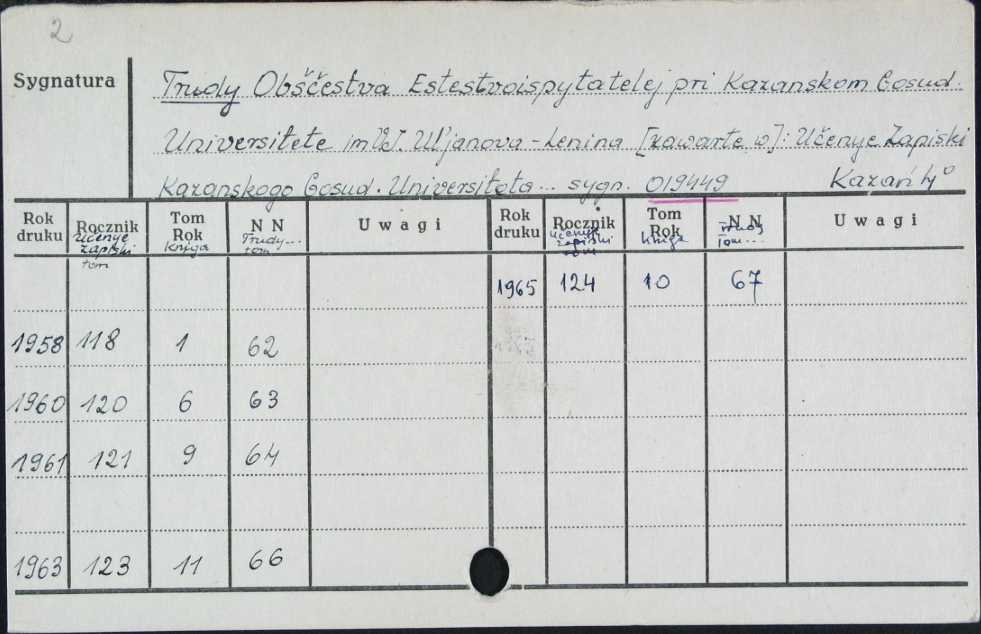 2
Sygnatura
Trudy Obščestva Estestvoispytatelej pri Kazanskom Gosud.
Universitete im. V.I. Ul'janova-Lenina [zawarte w]: Učenye Zapiski
Kazanskogo Gosud. Universiteta... sygn. 019449 Kazań 4°
Rok druku Rocznik Učenye zapiski tom Tom Rok kniga N N Trudy... tom Uwagi Rok druku Rocznik Učenye zapiski tom Tom Rok kniga N N Trudy tom... Uwagi
1965 124 10 67
1958 118 1 62
1960 120 6 63
1961 121 9 64
1963 123 11 66